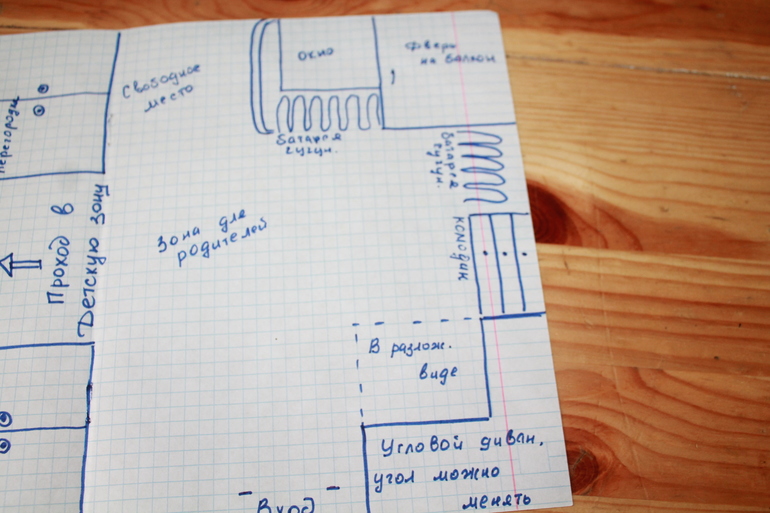 окно
Дверь
на балкон
Свободное
место
перегородки
батарея
чугун.
батарея
чугун.
комодик
Зона для
родителей
Проход в
Детскую зону
В разлож.
виде
Угловой диван,
угол можно
менять
Вход